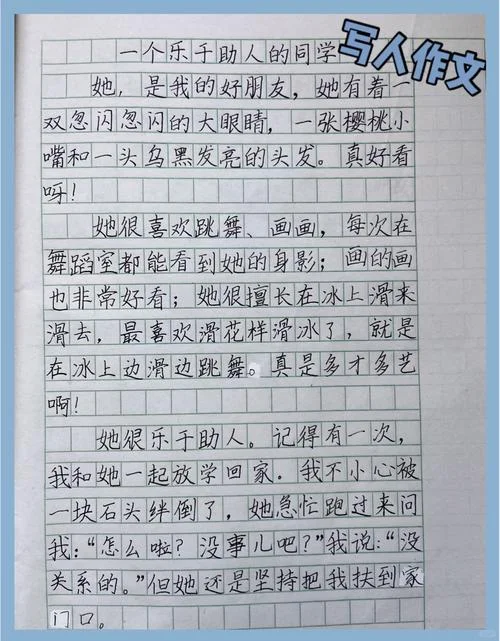 写人作文
一个乐于助人的同学
她，是我的好朋友，她有着一
双忽闪忽闪的大眼睛，一张樱桃小
嘴和一头乌黑发亮的头发。真好看
呀！
她很喜欢跳舞、画画，每次在
舞蹈室都能看到她的身影；画的画
也非常好看；她很擅长在冰上滑来
滑去，最喜欢滑花样滑冰了，就是
在冰上边滑边跳舞。真是多才多艺
啊！
她很乐于助人。记得有一次，
我和她一起放学回家．我不小心被
一块石头绊倒了，她急忙跑过来问
我：“怎么啦？没事儿吧？”我说：“没
关系的。”但她还是坚持把我扶到家
门口。